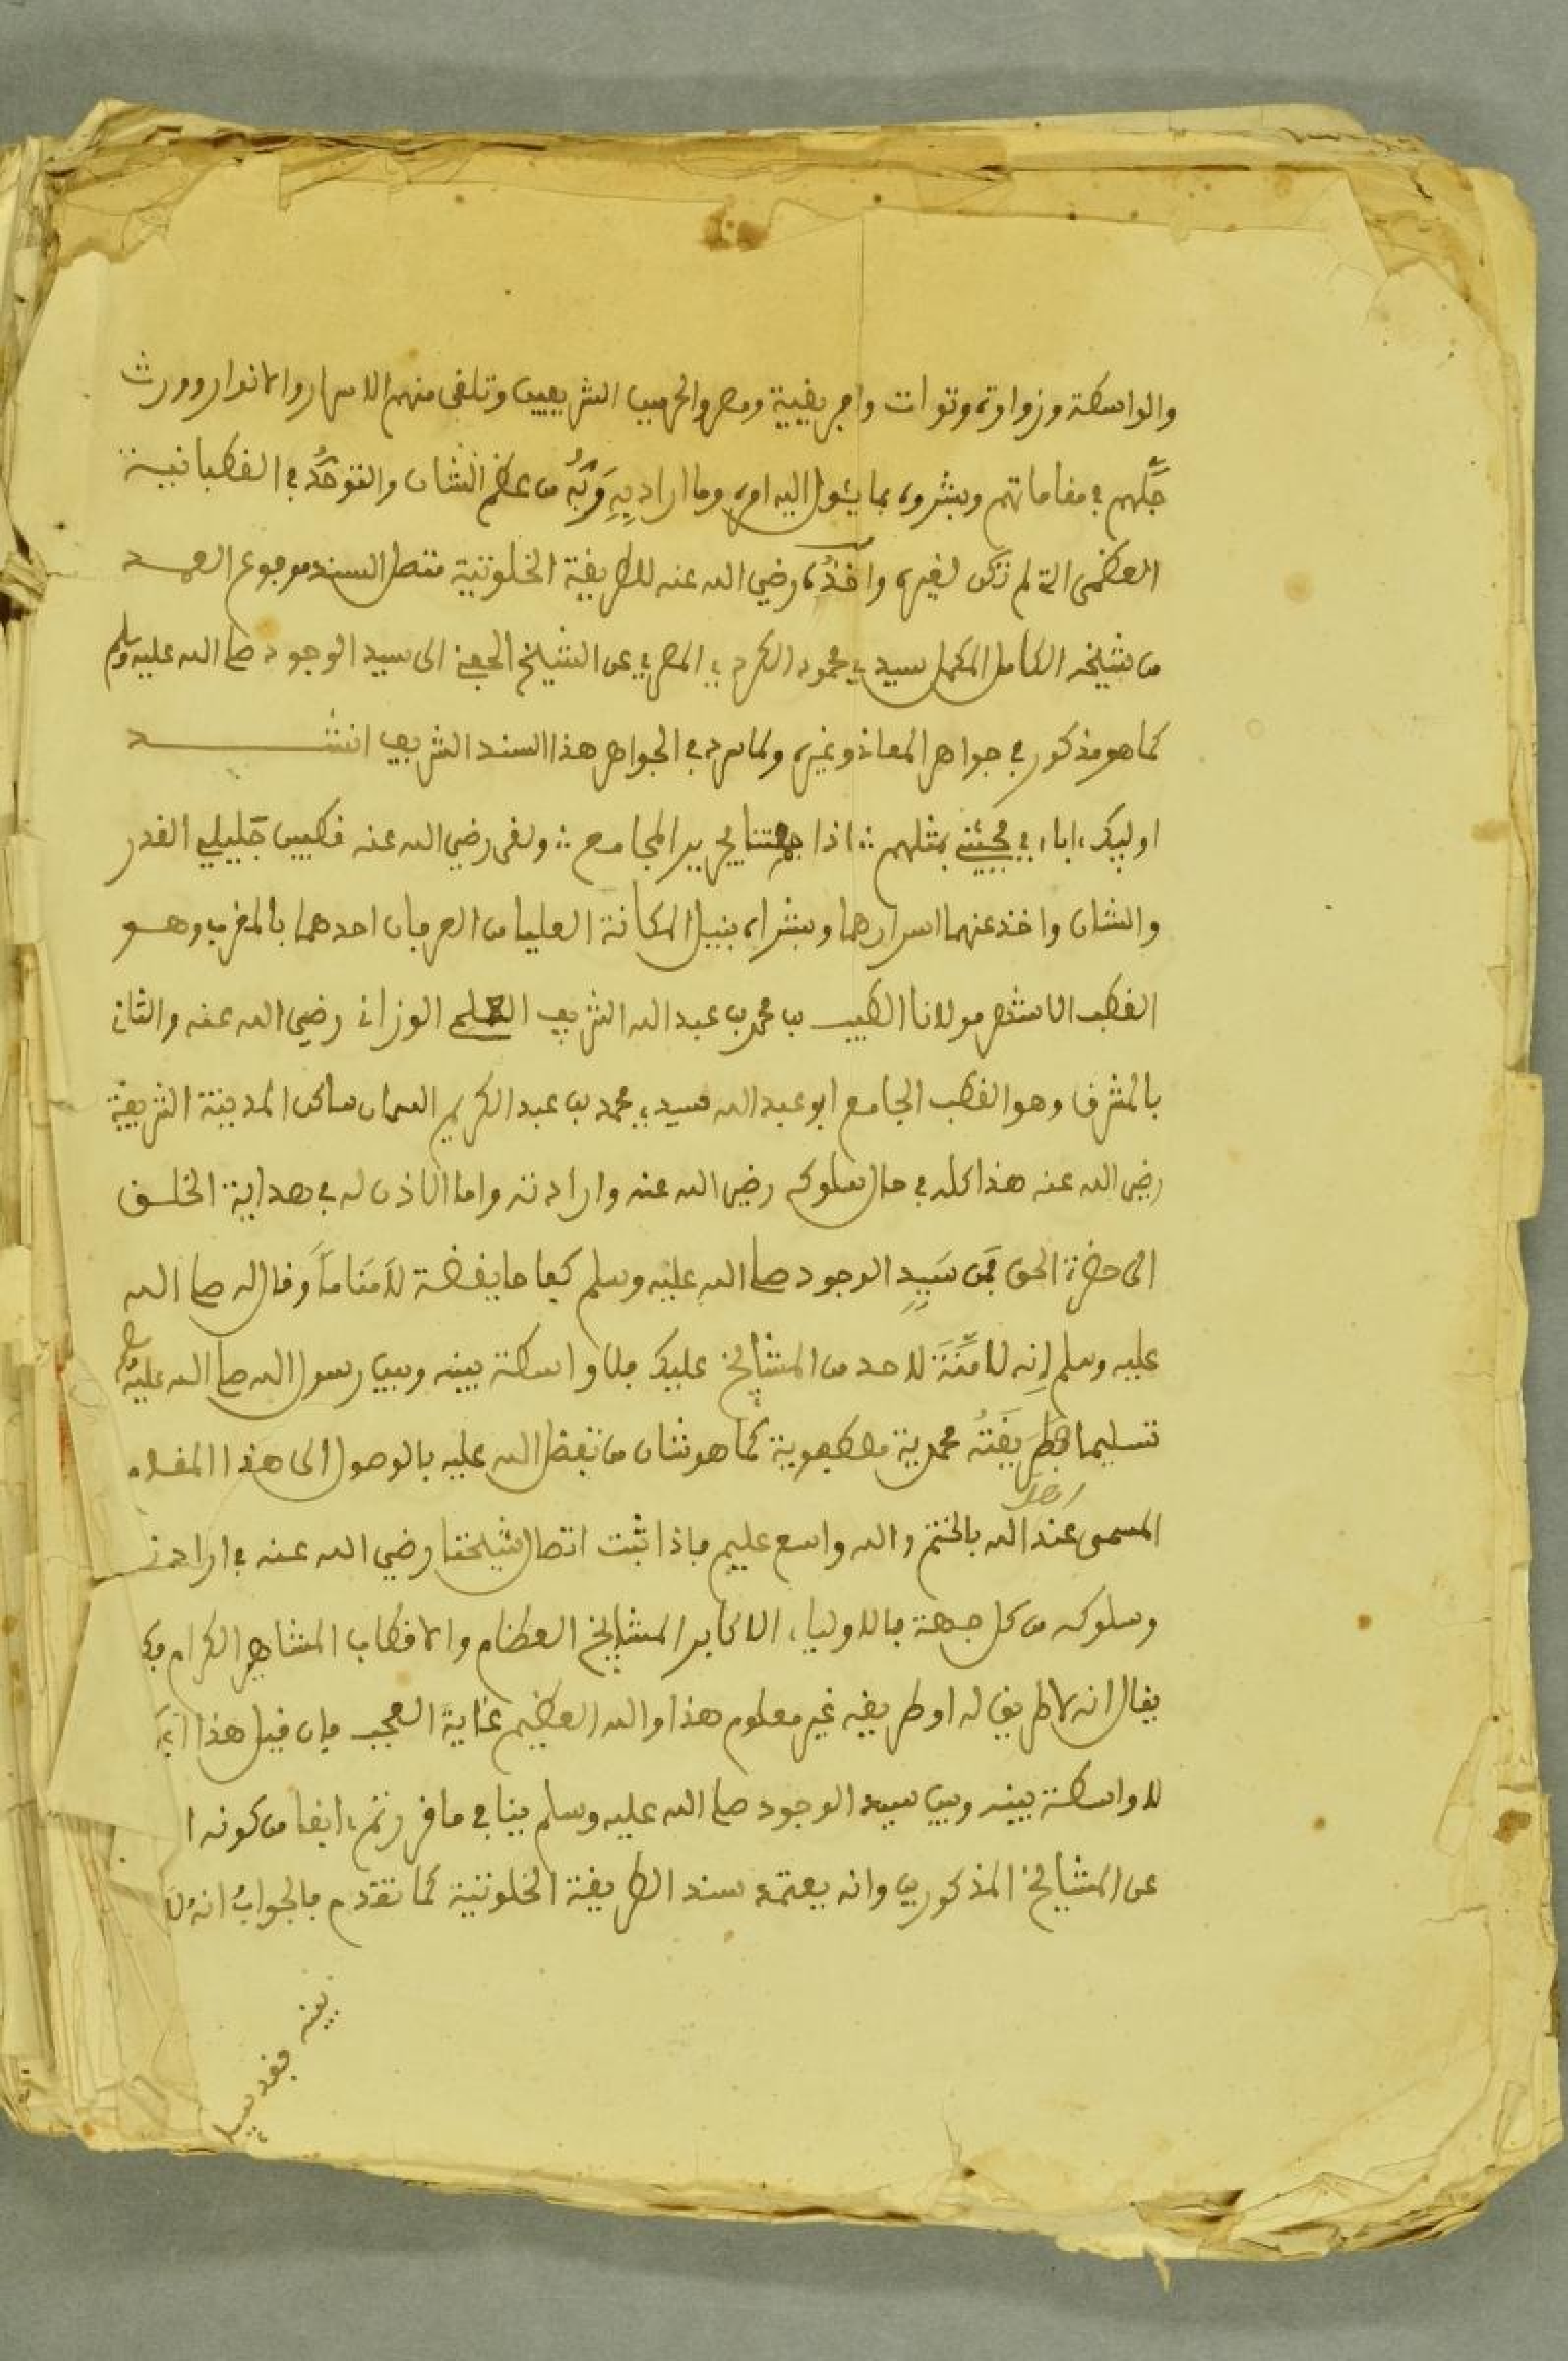 والواسطة وزواوة وتوات وافريقية ومصر والحرمين الشريفين وتلقى منهم الاسرار والانوار وورث
جلهم في مقاماتهم وبشروه بما يئول اليه امره وما اراد به ربه من عظم الشان والتوحد في القطبانية
العظمى التي لم تكن لغيره واخذه رضي الله عنه للطريقة الخلوتية متصل السند مرفوع العمد
من شيخه الكامل المكمل سيدي محمود الكردي المصري عن الشيخ الحفني الى سيد الوجود صلى الله عليه وسلم
كما هو مذكور في جواهر المعاني وغيره ولما سرد في الجواهر هذا السند الشريف انشد
اوليك ءاباءي فجئني بمثلهم ∴ اذا جمعتنا يا جرير المجامع ∴ ولقى رضي الله عنه قطبين جليلي القدر
والشان واخذ عنهما اسرارهما وبشراه بنيل المكانة العليا من العرفان احدهما بالمغرب وهو
القطب الاشهر مولانا الطيب بن محمد بن عبد الله الشريف العلمي الوزاني رضي الله عنه والثاني
بالمشرق وهو القطب الجامع ابو عبد الله سيدي محمد بن عبد الكريم السمان ساكن المدينة الشريفة
رضي الله عنه هذا كله في حال سلوكه رضي الله عنه وارادته واما الاذن له في هداية الخلق
الى حضرة الحق فمن سيد الوجود صلى الله عليه وسلم كفاحا يقظة لا مناما وقال له صلى الله
عليه وسلم انه لا منة لاحد من المشايخ عليك فلا واسطة بينه وبين رسول الله صلى الله عليه وسلم
تسليما فطريقته محمدية مصطفوية كما هو شان من تفضل الله عليه بالوصول الى هذا المقام
المسمى عند اهل الله بالختم والله واسع عليم فاذا ثبت اتصال شيخنا رضي الله عنه في ارادته
وسلوكه من كل جهة بالاولياء الاكابر المشايخ العظام والاقطاب المشاهير الكرام فكيف
يقال انه لا طريق له او طريقه غير معلوم هذا والله العظيم غاية العجب فان قيل هذا انه
لا واسطة بينه وبين سيد الوجود صلى الله عليه وسلم ينافي ما قررتم ءانفا من كونه ا
عن المشايخ المذكورين وانه يعتمد سند الطريقة الخلوتية كما تقدم فالجواب انه لا